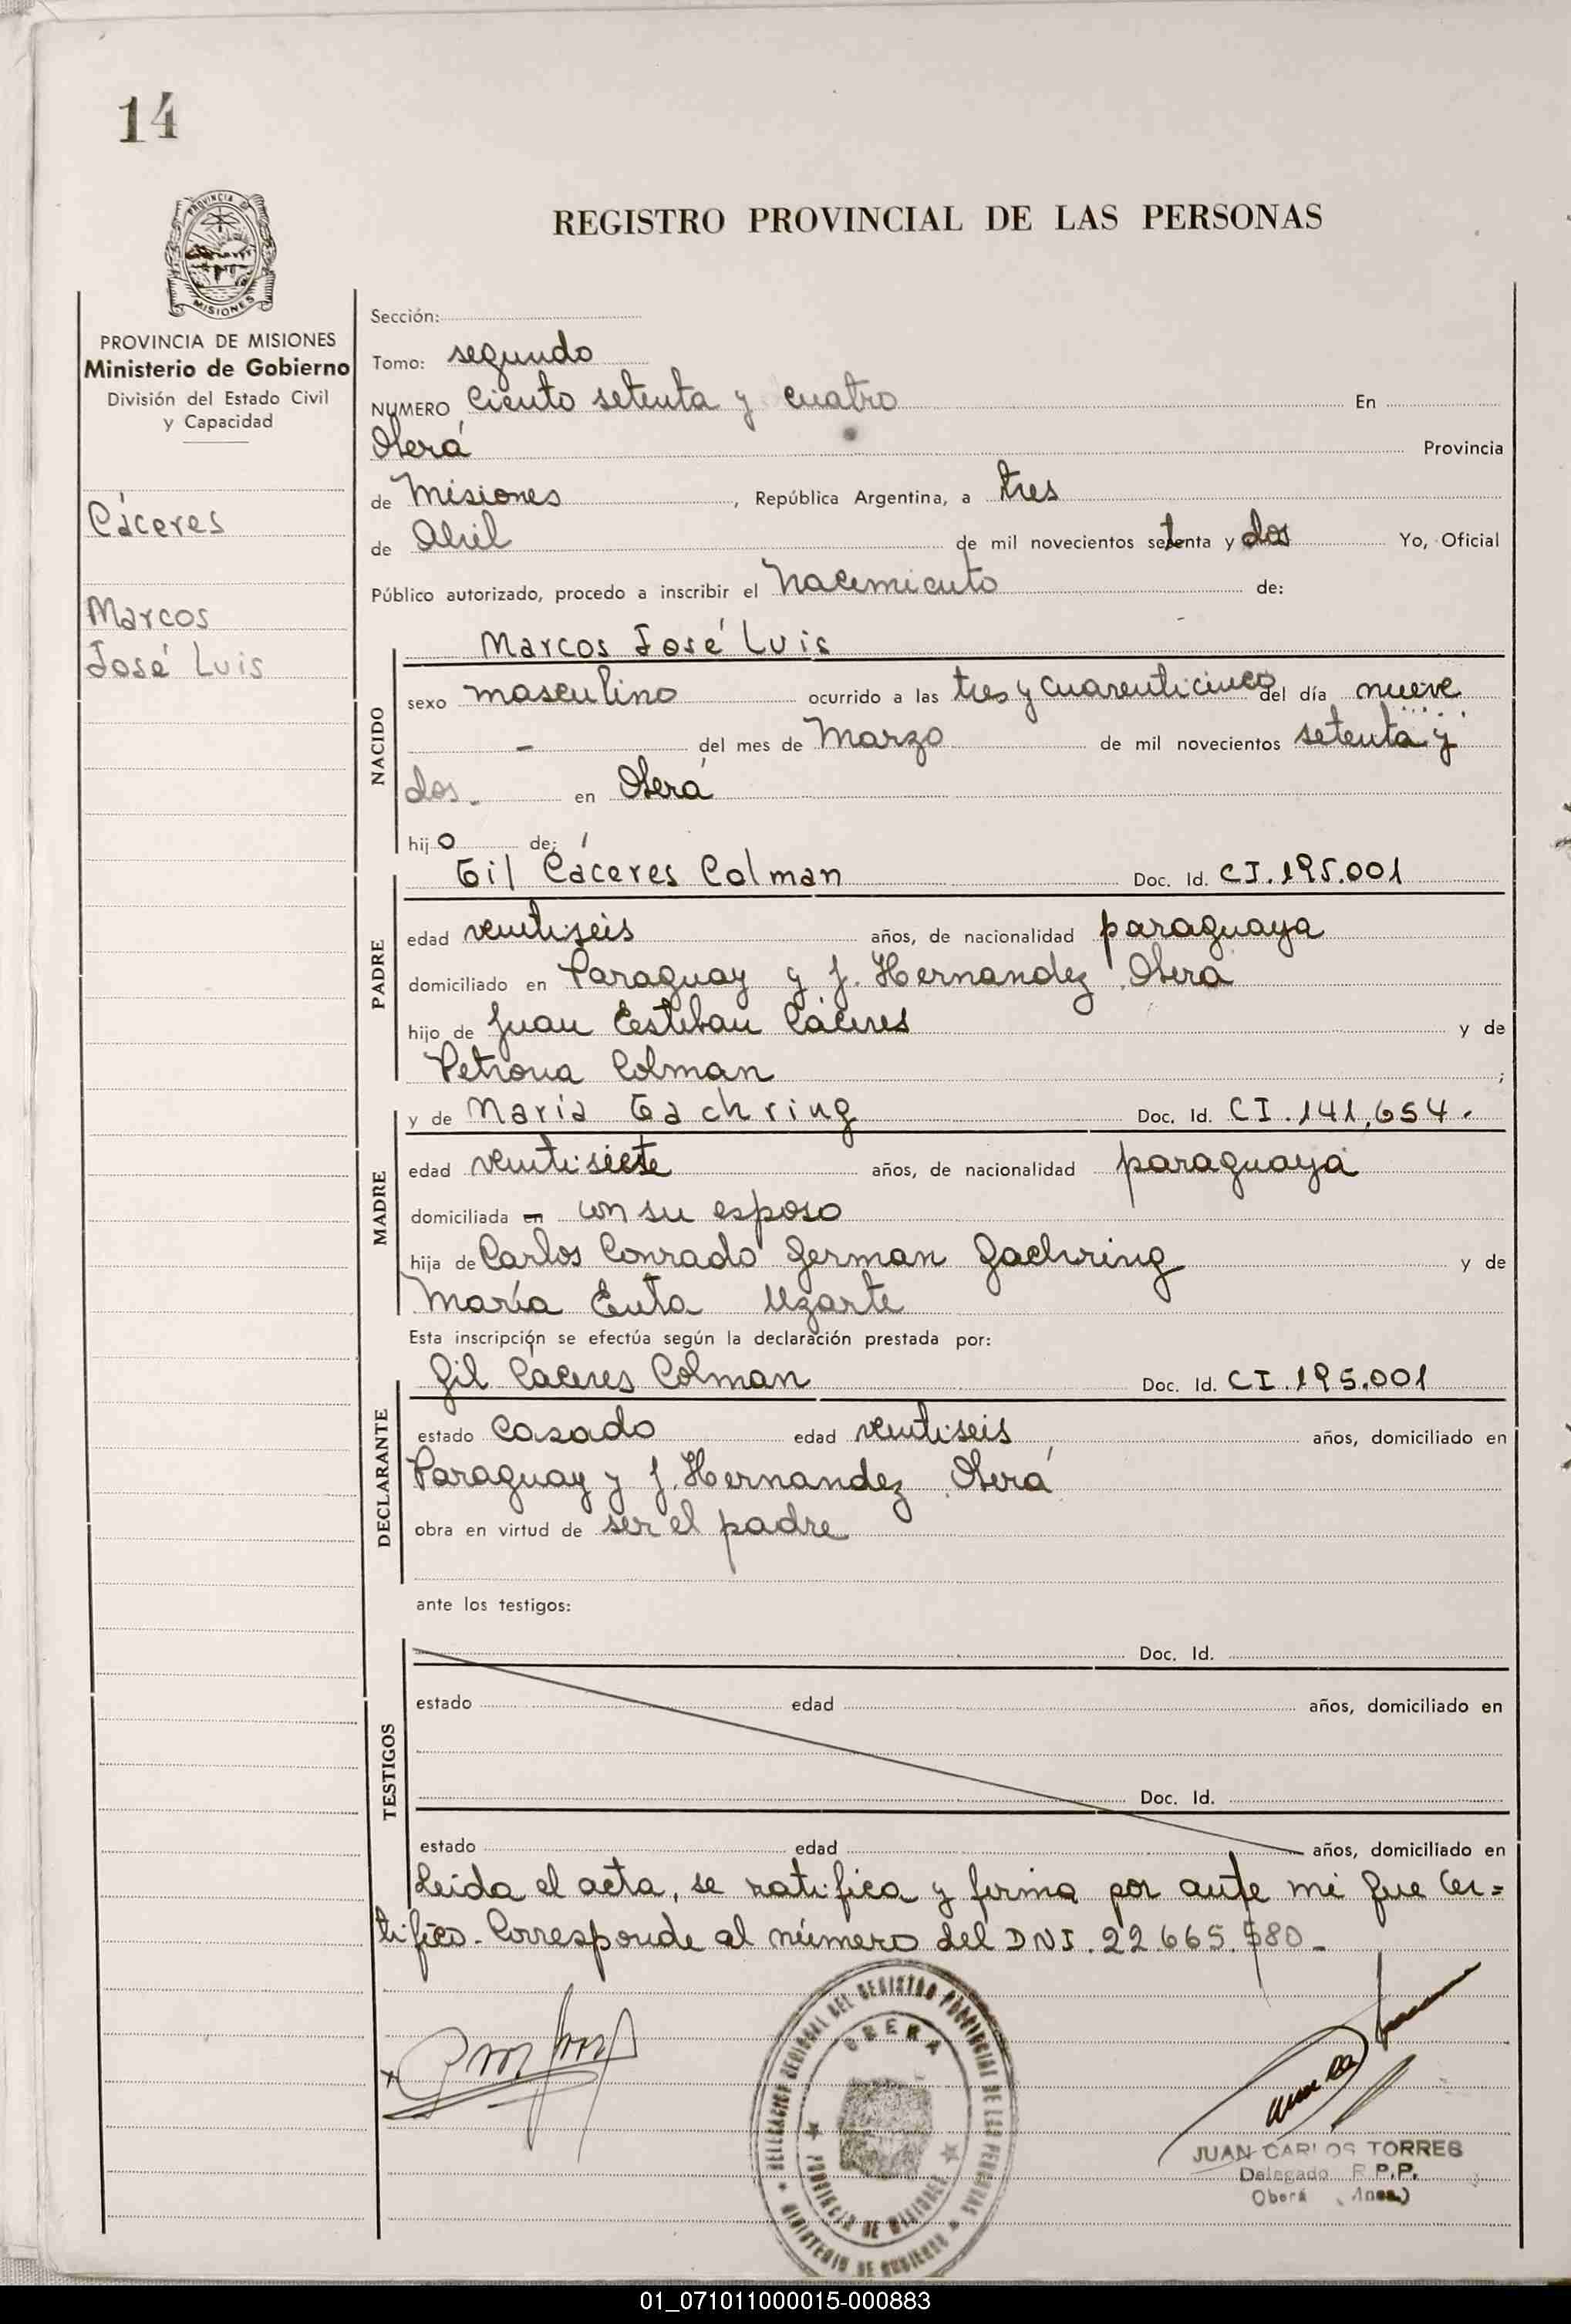 14
PROVINCIA DE
MISIONES
REGISTRO PROVINCIAL DE LAS PERSONAS
PROVINCIA DE MISIONES
Ministerio de Gobierno
División del Estado Civil
y Capacidad
Cáceres
Marcos
José Luis
Sección:
Tomo: segundo
NUMERO Ciento setenta y cuatro En
Oberá Provincia
de Misiones, República Argentina, a tres
de Abril de mil novecientos setenta y dos Yo, Oficial
Público autorizado, procedo a inscribir el Nacimiento de:
NACIDO
Marcos José Luis
sexo masculino ocurrido a las tres y cuarenticinco del día nueve
- del mes de Marzo de mil novecientos setenta y
dos.- en Oberá
hijo de:
PADRE
Gil Cáceres Colman Doc. Id. CI.195.001
edad ventiseis años, de nacionalidad paraguaya
domiciliado en Paraguay y J. Hernandez Oberá
hijo de Juan Esteban Cáceres y de
Petrona Colman ;
MADRE
y de María Gaehring Doc. Id. CI.141.654.
edad ventisiete años, de nacionalidad paraguaya
domiciliada en con su esposo
hija de Carlos Conrado German Gaehring y de
María Uzarte
Esta inscripción se efectúa según la declaración prestada por:
DECLARANTE
Gil Cáceres Colman Doc. Id. CI.195.001
estado Casado edad ventiseis años, domiciliado en
Paraguay y J. Hernandez Oberá
obra en virtud de ser el padre
ante los testigos:
TESTIGOS
Doc. Id.
estado edad años, domiciliado en
Doc. Id.
estado edad años, domiciliado en
Leida el acta, se ratifica y firma por ante mi que Cer=
tifico.- Corresponde al número del DNI.22.665.580.-
DELEGACION REGIONAL DEL REGISTRO PROVINCIAL DE LAS PERSONAS
OBERA
PROVINCIA DE MISIONES
MINISTERIO DE GOBIERNO
JUAN CARLOS TORRES
Delegado R.P.P.
Oberá
01_071011000015-000883